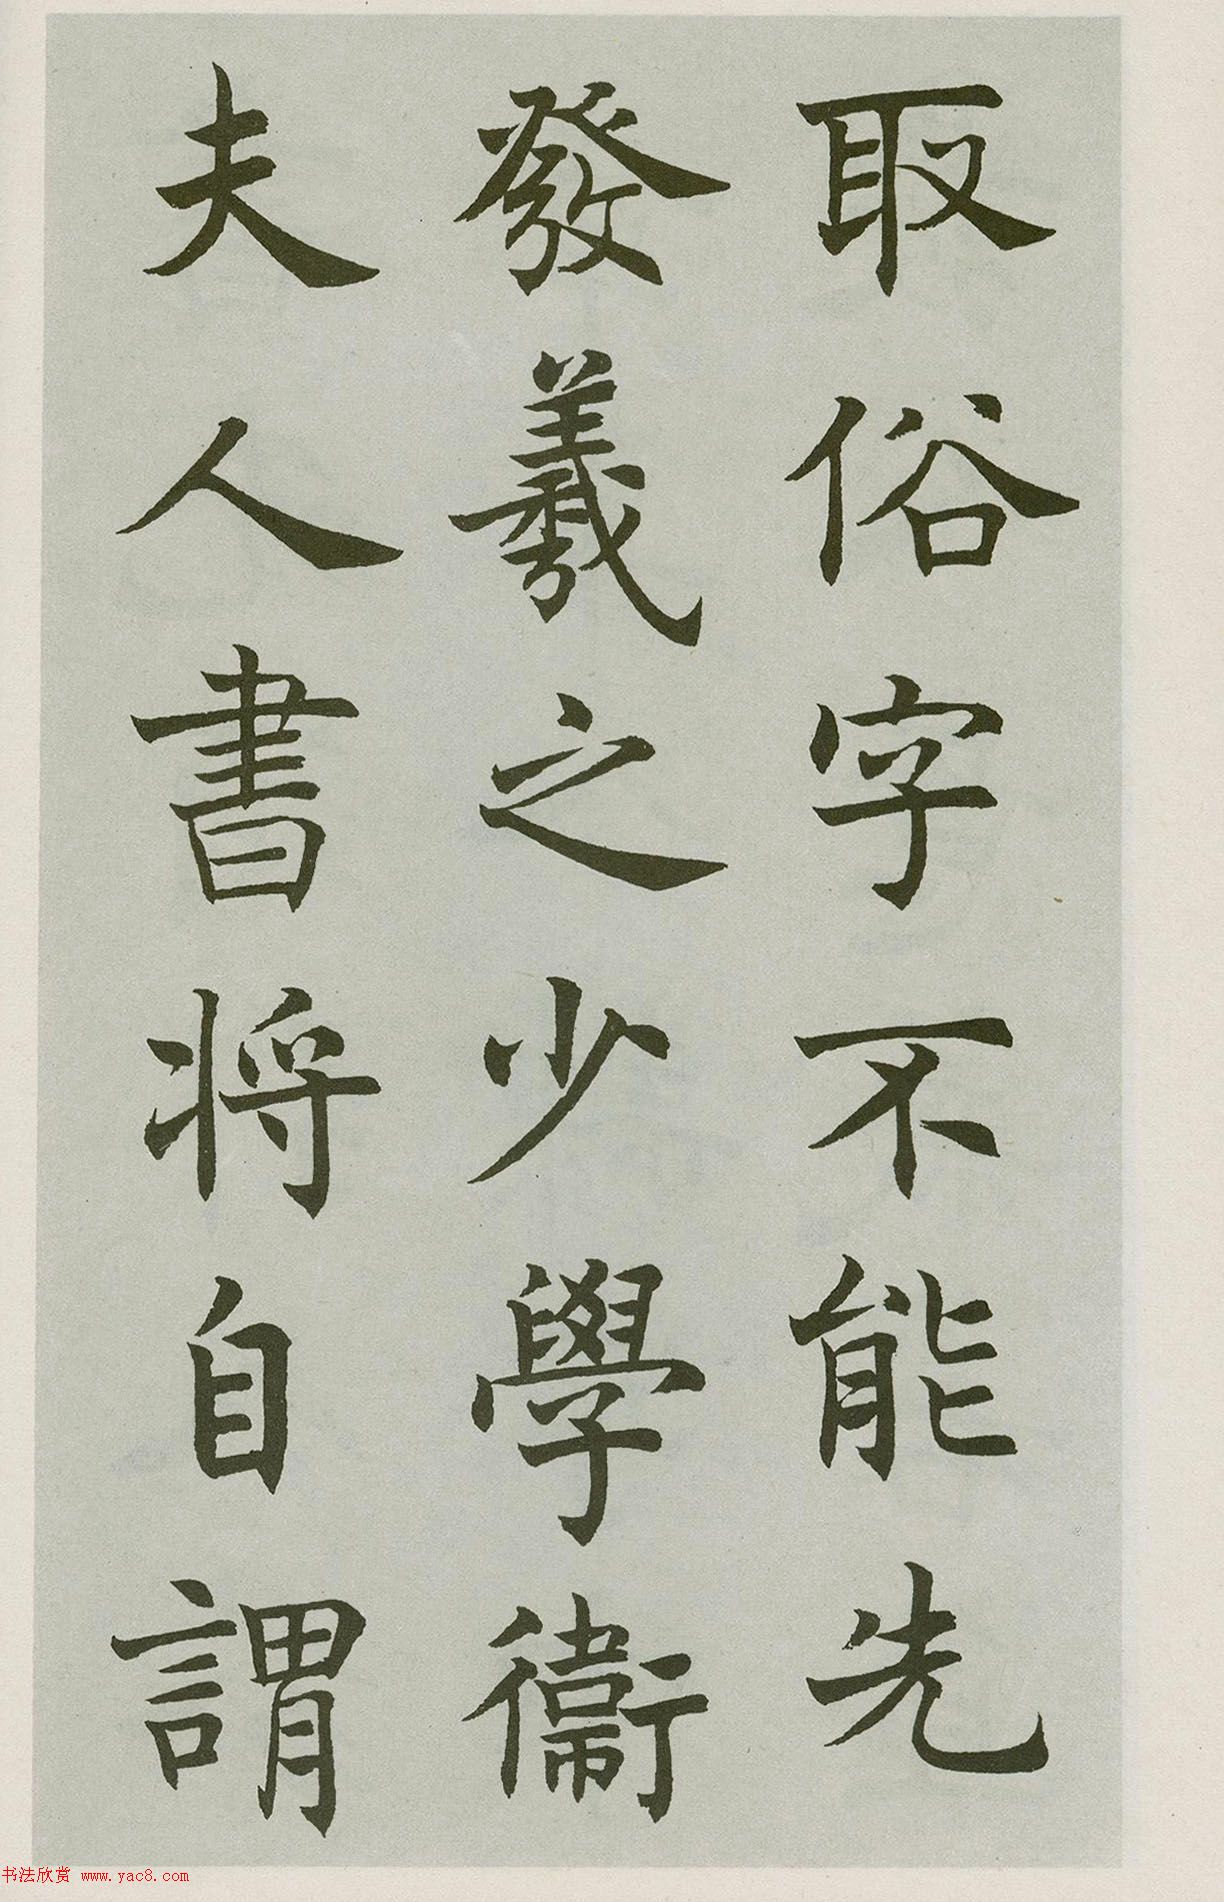 取俗字不能先
發羲之少學衞
夫人書將自謂
书法欣赏 www.yac8.com